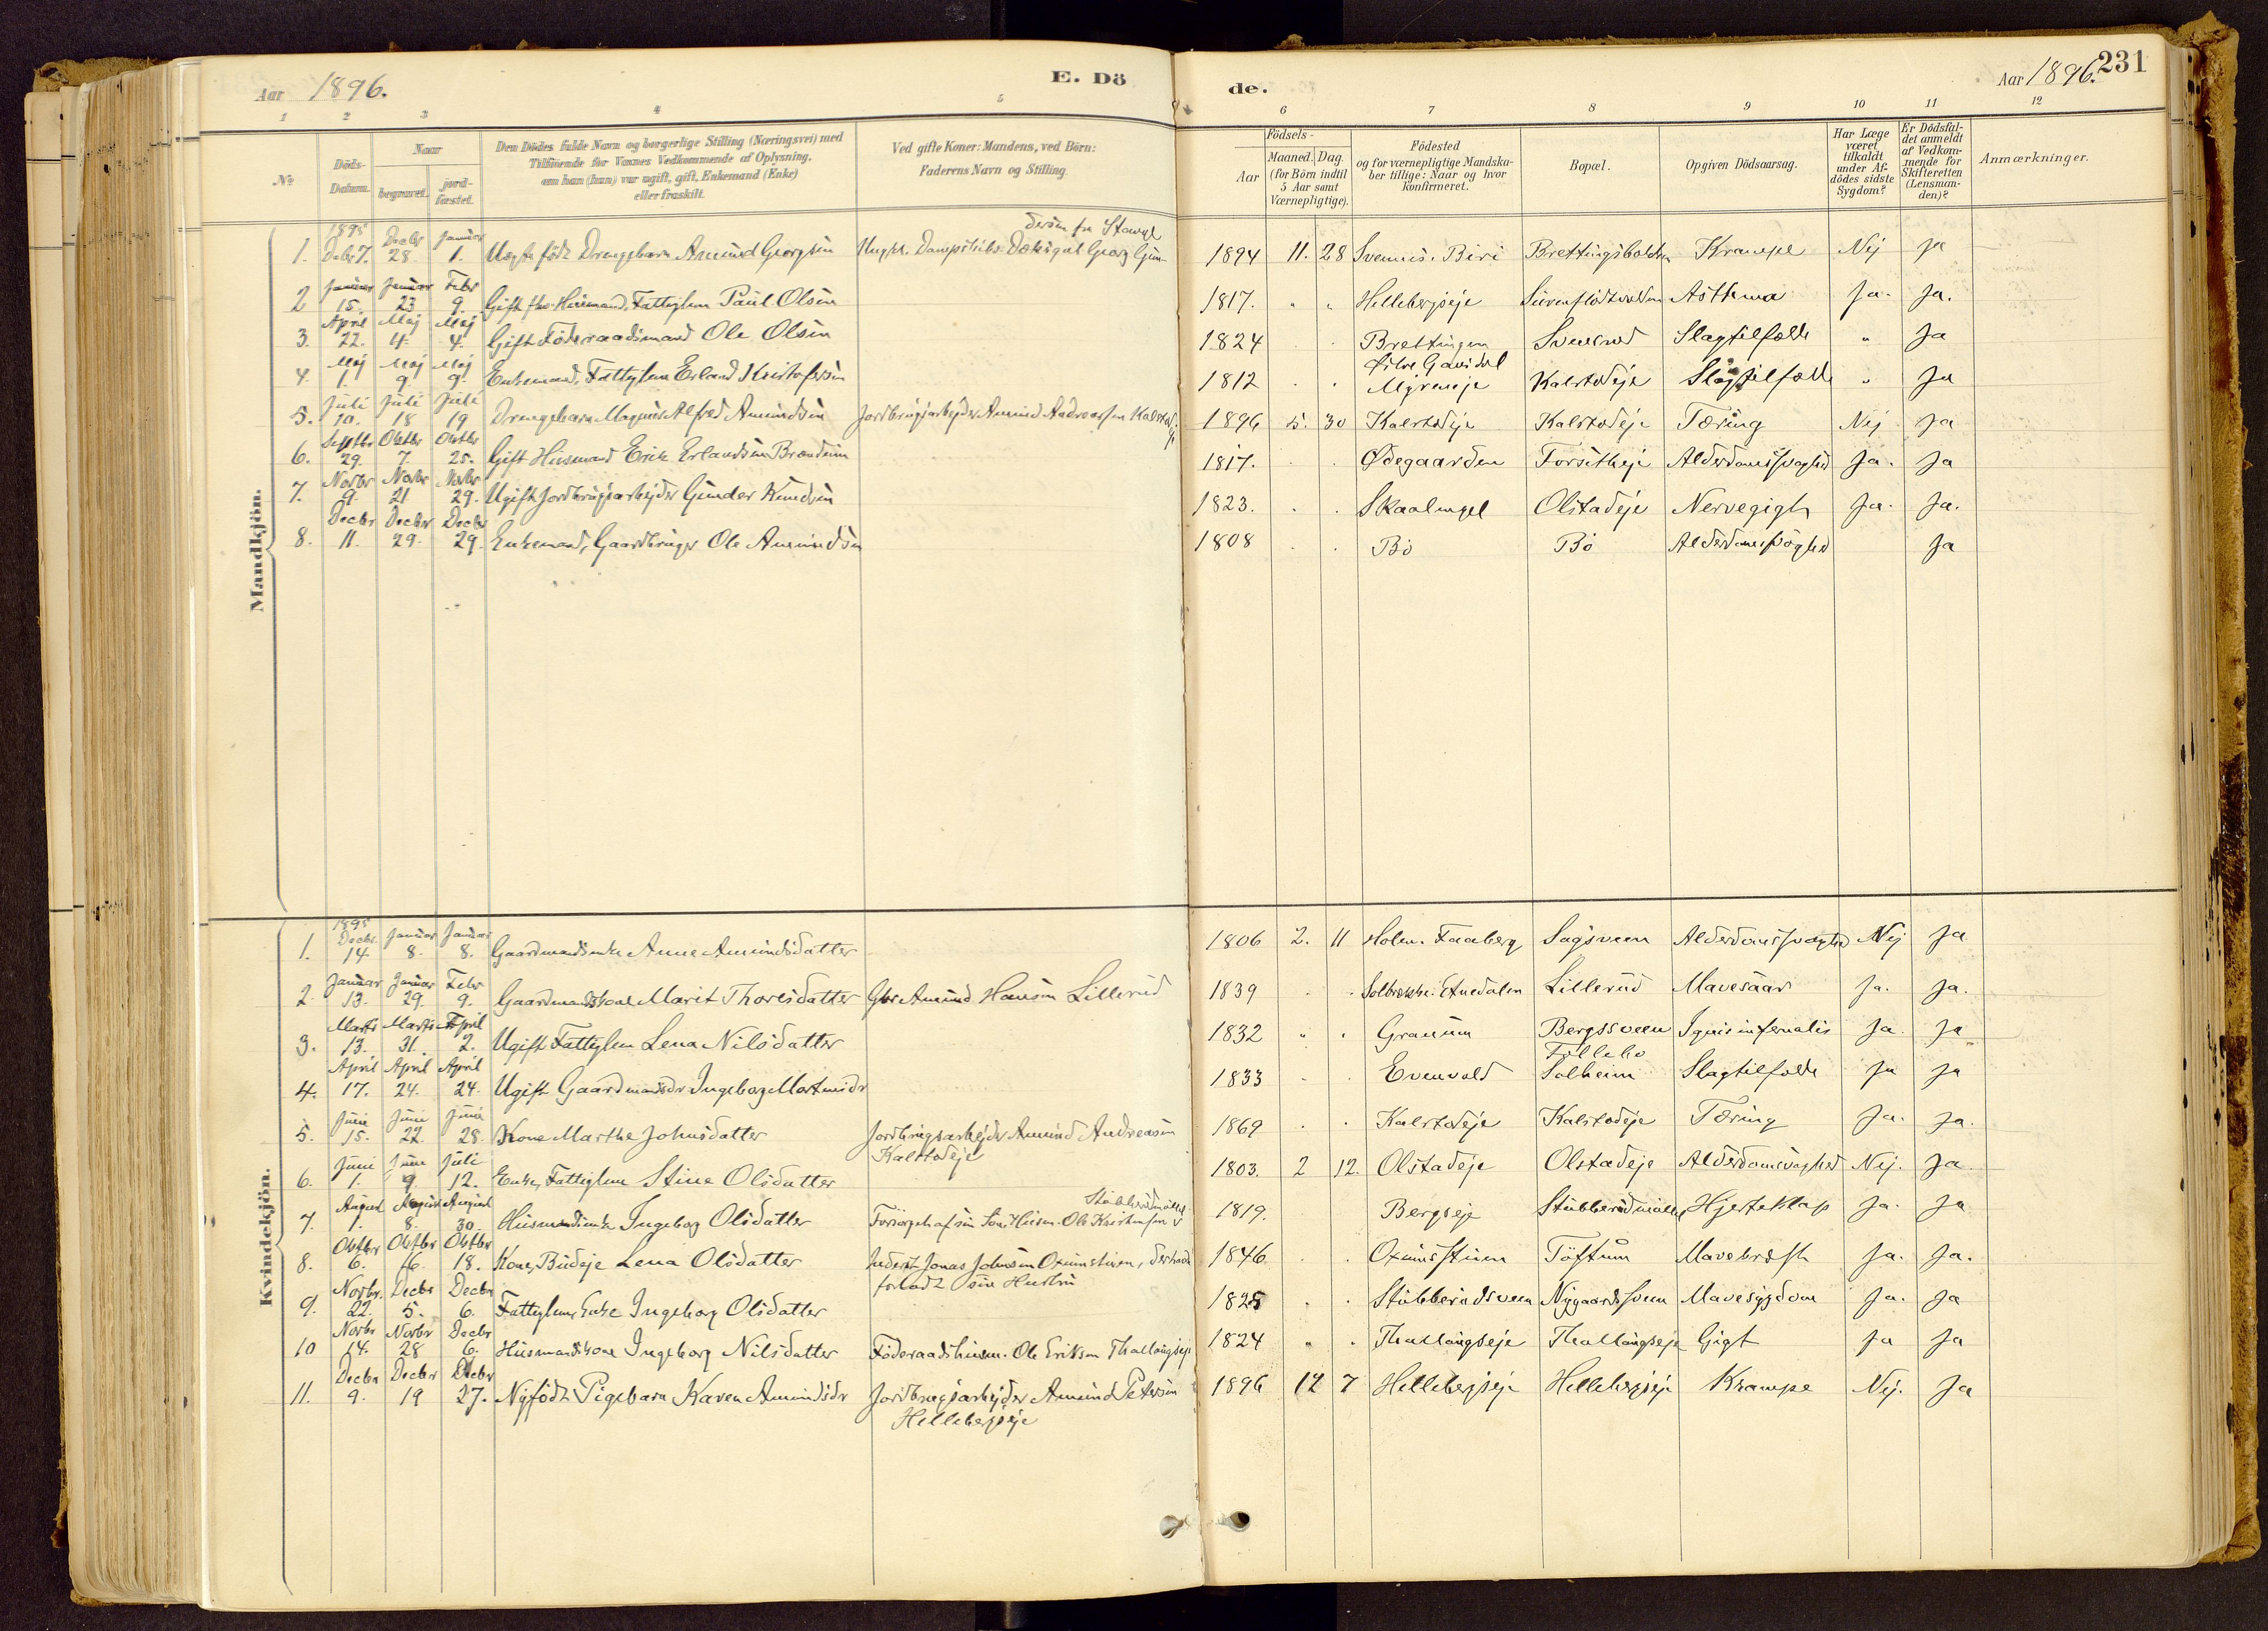 Aar 1896. E. Dö
de. Aar 1896. 231
1 2 3 4 5 6 7 8 9 10 11 12
No
Döds-Datum.
Naar
begravet.
jord-fæstet.
Den Dödes fulde Navn og borgerlige Stilling (Næringsvei) med
Tilföiende for Voxnes Vedkommende af Oplysning,
om han (hun) var ugift, gift, Enkemand (Enke)
eller fraskilt.
Ved gifte Koner: Mandens, ved Börn:
Faderens Navn og Stilling.
Födsels-
Aar
Maaned. Dag.
(for Börn indtil
5 Aar samt
Værnepligtige).
Födested
og for værnepligtige Mandska-
ber tillige: Naar og hvor
konfirmeret.
Bopæl.
Opgiven Dödsaarsag.
Har Læge
været
tilkaldt
under Af-
dödes sidste
Sygdom?
Er Dödsfal-
det anmeldt
af Vedkom-
mende for
Skifteretten
(Lensman-
den)?
Anmærkninger.
Mandkjön.
1. 1895 Decbr 7. Decbr 28. Januar 1. Uægte födt Drengebarn Amund Georgsen Georg Gun- 1894 11. 28 Svennes. Biri Krampe Nej ja
dersen fra
2 Januar 15. Januar 23 Febr 9. Gift fhv. Husmand, Fattiglem Paul Olsen 1817. " " Hellebergseje Asthma ja. ja.
3. April 22. Maj 4. Maj 4. Gift Föderaadsmand Ole Olsen 1824 Brettingen Sveerud Slagtilfælde " ja
4. Maj 1. Maj 9. Maj 9. Enkemand, Fattiglem Erland Kristofersen 1812 Østre Gausdal Kalstadeje Slagtilfælde " ja
5. Juli 10. Juli 18 Juli 19 Drengebarn Magnus Alfred Amundsen Jordbrugsarbejder Amund Andreassen Kalstadeje 1896 5. 30 Kalstadeje Kalstadeje Tæring Nej ja
6. Septbr 29. Oktbr 7. Oktbr 25. Gift Husmand Erik Erlandsen Brændeun 1817. Ødegaarden Forsetheje Alderdomssvaghed ja. ja
7. Novbr 9. Novbr 21 Novbr 29. Ugift Jordbrugsarbejder Gunder Knudsen 1823. Skaalengel Olstadeje Nervegigt ja. ja.
8. Decbr 11. Decbr 29. Decbr 29. Enkemand, Gaardbruger Ole Amundsen 1808 Bö Bö Alderdomssvaghed ja
Kvindekjön.
1. 1895 Decbr. 14. Januar 8. Januar 8. Gaardmandsenke Anne Amundsdatter 1806 2. 11 Holen. Faaberg Sagsveen Alderdomssvaghed Nej ja
2. Januar 13. Januar 29. Febr 9. Gaardmandskone Marit Thoresdatter Gbr Amund Hansen Lillerud 1839 Solbrekke. Etnedalen Lillerud Mavesaar ja. ja.
3. Marts 13. Marts 31. April 2. Ugift Fattiglem Lena Nilsdatter 1832 " Granum Bergssveen Ignis infernalis ja. ja
4. April 17. April 24. April 24. Ugift Gaardmandsdr Ingeborg Mortensdr 1833 Evenvold Follebo Solheim Slagtilfælde ja ja
5. Juni 15. Juni 22. Juni 28. Kone Marthe Johnsdatter Jordbrugsarbejder Amund Andreasen 1869 Kalstadeje Kalstadeje Tæring ja. ja.
Kalstadeje
6. Juni 1. Juni 9. Juli 12. Enke, Fattiglem Stine Olsdatter 1803. 2 12. Olstadeje Olstadeje Alderdomssvaghed Nej. ja.
7. August 1. August 8. August 30. Husmandsenke Ingeborg Olsdatter Forsörget af sin Sön Husm. Ole Kristensen 1819. Bergseje Hjerteklap ja. ja
8. Oktbr 6. Oktbr 16. Oktbr 18. Kone, Budeje Lena Olsdatter Inderst Jonas Johnsen Oxumstuen, der havde 1846 Oxumsstuen Töftum Mavekræft ja. ja.
forladt sin Hustru
9. Novbr. 22. Decbr 5. Decbr 6. Fattiglem, Enke Ingeborg Olsdatter 1825 Stubberudsveen Nygaardssveen Mavesygdom ja. ja
10 Novbr 14. Novbr 28 Decbr 6. Husmandskone Ingeborg Nilsdatter Föderaadshusm. Ole Eriksen Thallaugseje 1824 " Thallaugseje Thallaugseje Gigt ja ja
11. Decbr 9. Decbr 19 Decbr 27. Nyfödt Pigebarn Karen Amundsdr Jordbrugsarbejder Amund Petersen 1896 12 7 Hellebergseje Hellebergseje Krampe Nej. ja
Hellebergseje